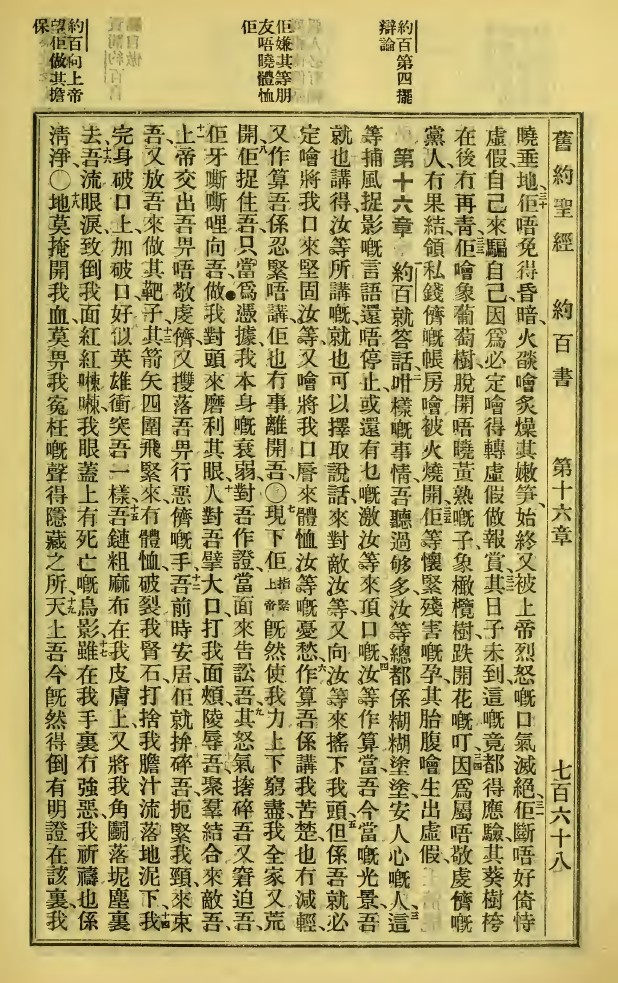 舊約聖經　約百書　第十六章　七百六十八
約百第四擺
辯論
佢嫌其等朋
友唔曉體恤
佢
約百向上帝
望佢做其擔
保
曉垂地、三十佢唔免得昏暗、火燄噲炙燥其嫩笋、始終又被上帝烈怒嘅口氣滅絕、三一佢斷唔好倚恃
虛假自己來騙自己因爲必定噲得轉虛假做報賞、三二其日子未到這嘅竟都得應驗、其葵樹桍
在後冇再青、三三佢噲象葡萄樹脫開唔曉黃熟嘅子、象橄欖樹跌開花嘅叮、三四因爲屬唔敬虔儕嘅
黨人冇果結、領私錢儕嘅帳房噲被火燒開、三五佢等懷緊殘害嘅孕、其胎腹噲生出虛假、
第十六章　約百就答話、二咁樣嘅事情吾聽過够多、汝等總都係糊糊塗塗安人心嘅人、三這
等捕風捉影嘅言語還唔停止、或還有乜嘅激汝等來頂口嘅、四汝等作算當吾今當嘅光景、吾
就也講得汝等所講嘅、就也可以擇取說話來對敵汝等、又向汝等來搖下我頭、五但係吾就必
定噲將我口來堅固汝等、又噲將我口唇來體恤汝等嘅憂愁、六作算吾係講我苦楚也冇減輕、
又作算吾係忍緊唔講、佢也冇事離開吾、〇七現下佢指緊上帝旣然使我力上下窮盡、我全家又荒
開、八佢捉住吾、只當爲憑據、我本身嘅衰弱、對吾作證當面來告訟吾、九其怒氣搼碎吾、又窘迫吾、
佢牙嘶嘶哩向吾、做我對頭來磨利其眼、十人對吾擘大口、打我面頰陵辱吾、聚羣結合來敵吾、
十一上帝交出吾畀唔敬虔儕、又㩳落吾畀行惡儕嘅手、十二吾前時安居、佢就拚碎吾、扼緊我頸來朿
吾、又放吾來做其靶子、十三其箭矢四圍飛緊來、冇體恤破裂我腎石、打捨我膽汁流落地泥下、十四我
完身破口上加破口、好似英雄衝突吾一樣、十五吾鏈粗麻布在我皮膚上、又將我角鬭落坭塵裏
去、十六吾流眼淚致倒我面紅紅㗢㗢、我眼蓋上有死亡嘅烏影、十七雖在我手裏冇強惡、我祈禱也係
清淨、〇十八地莫掩開我血、莫畀我寃枉嘅聲得隱藏之所、十九天上吾今旣然得倒有明證、在該裏我